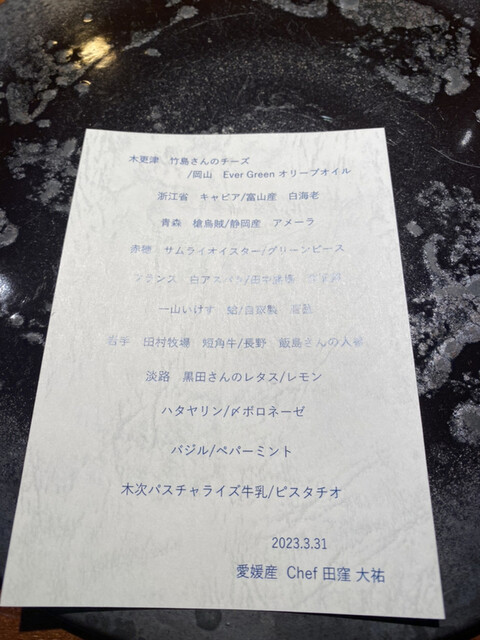 木更津　竹島さんのチーズ
/岡山　Ever Green オリーブオイル
浙江省　キャビア/富山産　白海老
青森　槍烏賊/静岡産　アメーラ
赤穂　サムライオイスター/グリーンピース
フランス　白アスパラ/田中
一山いけす　鮑/自家製
岩手　田村牧場　短角牛/長野　飯島さんの人参
淡路　黒田さんのレタス/レモン
ハタヤリン/〆ボロネーゼ
バジル/ペパーミント
木次パスチャライズ牛乳/ピスタチオ
2023.3.31
愛媛産　Chef 田窪 大祐